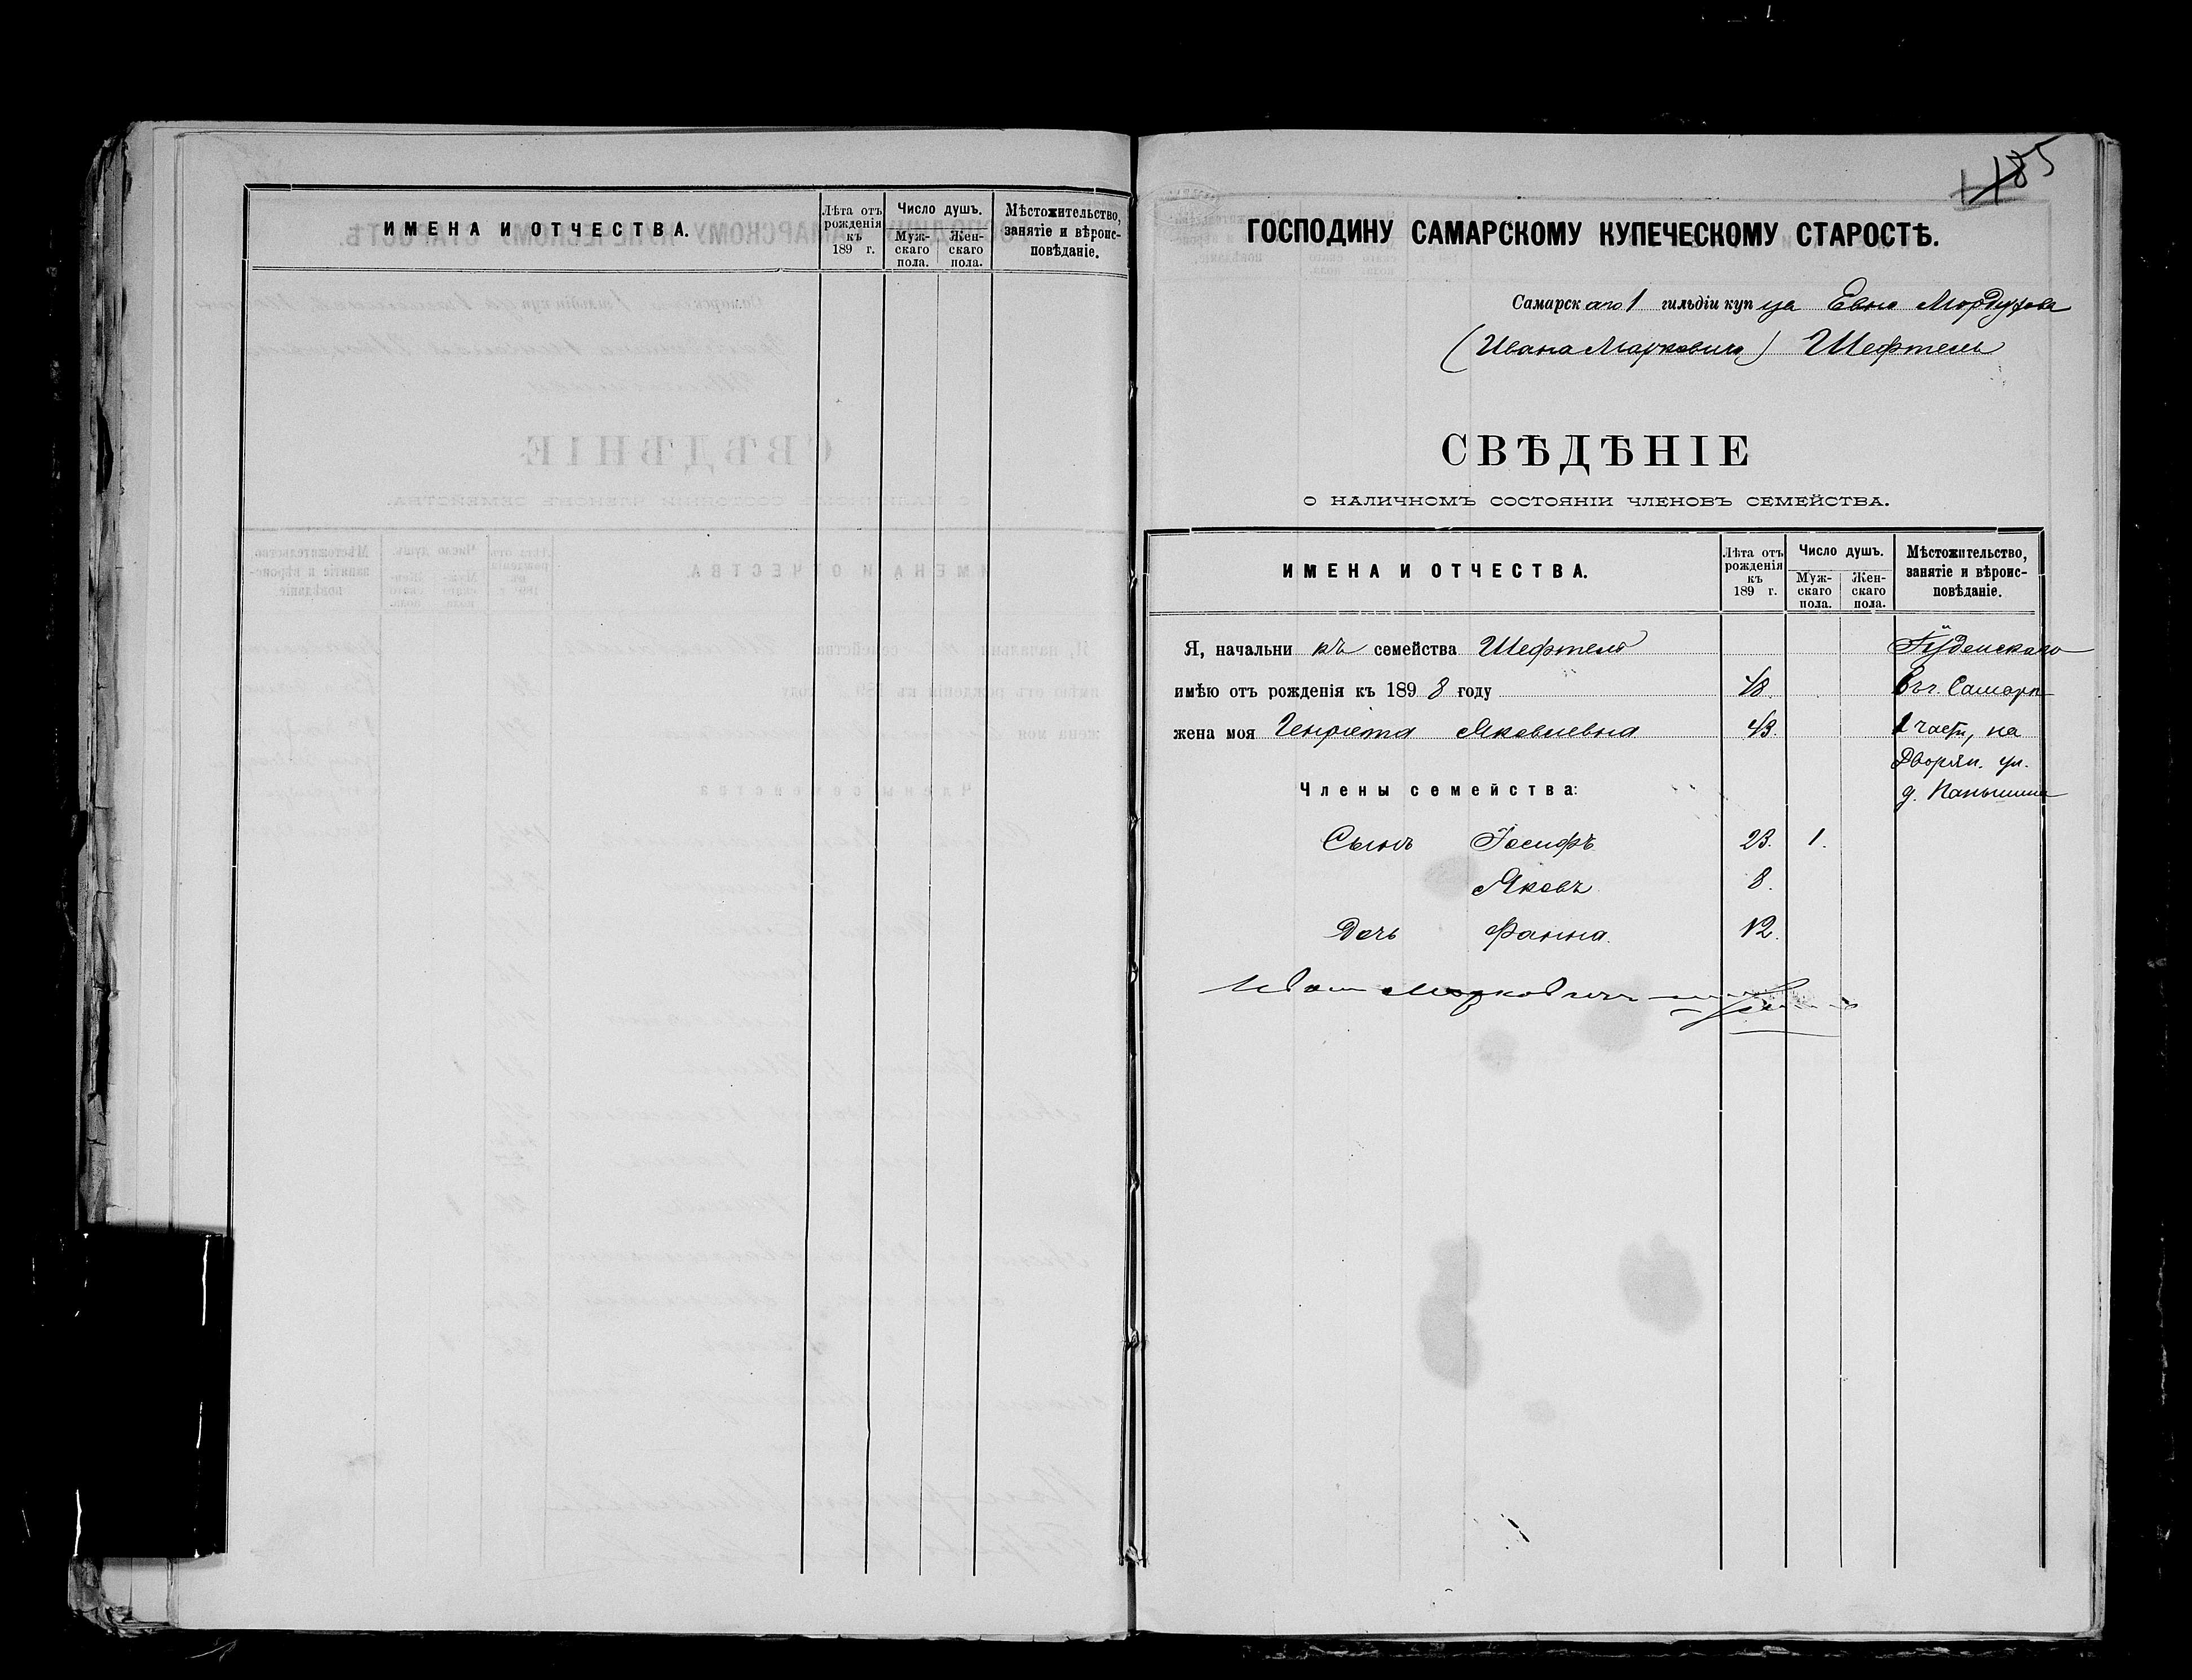 ИМЕНА И ОТЧЕСТВА.
Лѣта отъ рожденія къ 189 г.
Число душъ.
Муж-скаго пола.
Жен-скаго пола.
Мѣстожительство, занятіе и вѣроис-повѣданіе.
185
ГОСПОДИНУ САМАРСКОМУ КУПЕЧЕСКОМУ СТАРОСТѢ.
Самарскаго 1 гильдіи купца Евно Мордухова
(Ивана Марковича) Шефтель
СВѢДѢНІЕ
О НАЛИЧНОМЪ СОСТОЯНІИ ЧЛЕНОВЪ СЕМЕЙСТВА.
ИМЕНА И ОТЧЕСТВА.
Лѣта отъ рожденія къ 189 г.
Число душъ.
Муж-скаго пола.
Жен-скаго пола.
Мѣстожительство, занятіе и вѣроис-повѣданіе.
Я, начальникъ семейства Шефтель Іудейскаго
имѣю отъ рожденія къ 1898 году 48. въ г. Самарѣ
жена моя Генріета Яковлевна 43. 1 части, на
Дворян. ул.
Члены семейства: д. Паньшина
Сынъ Іосифъ 23. 1.
Яковъ 8.
Дочь Фанна. 12.
Иванъ Марковичъ